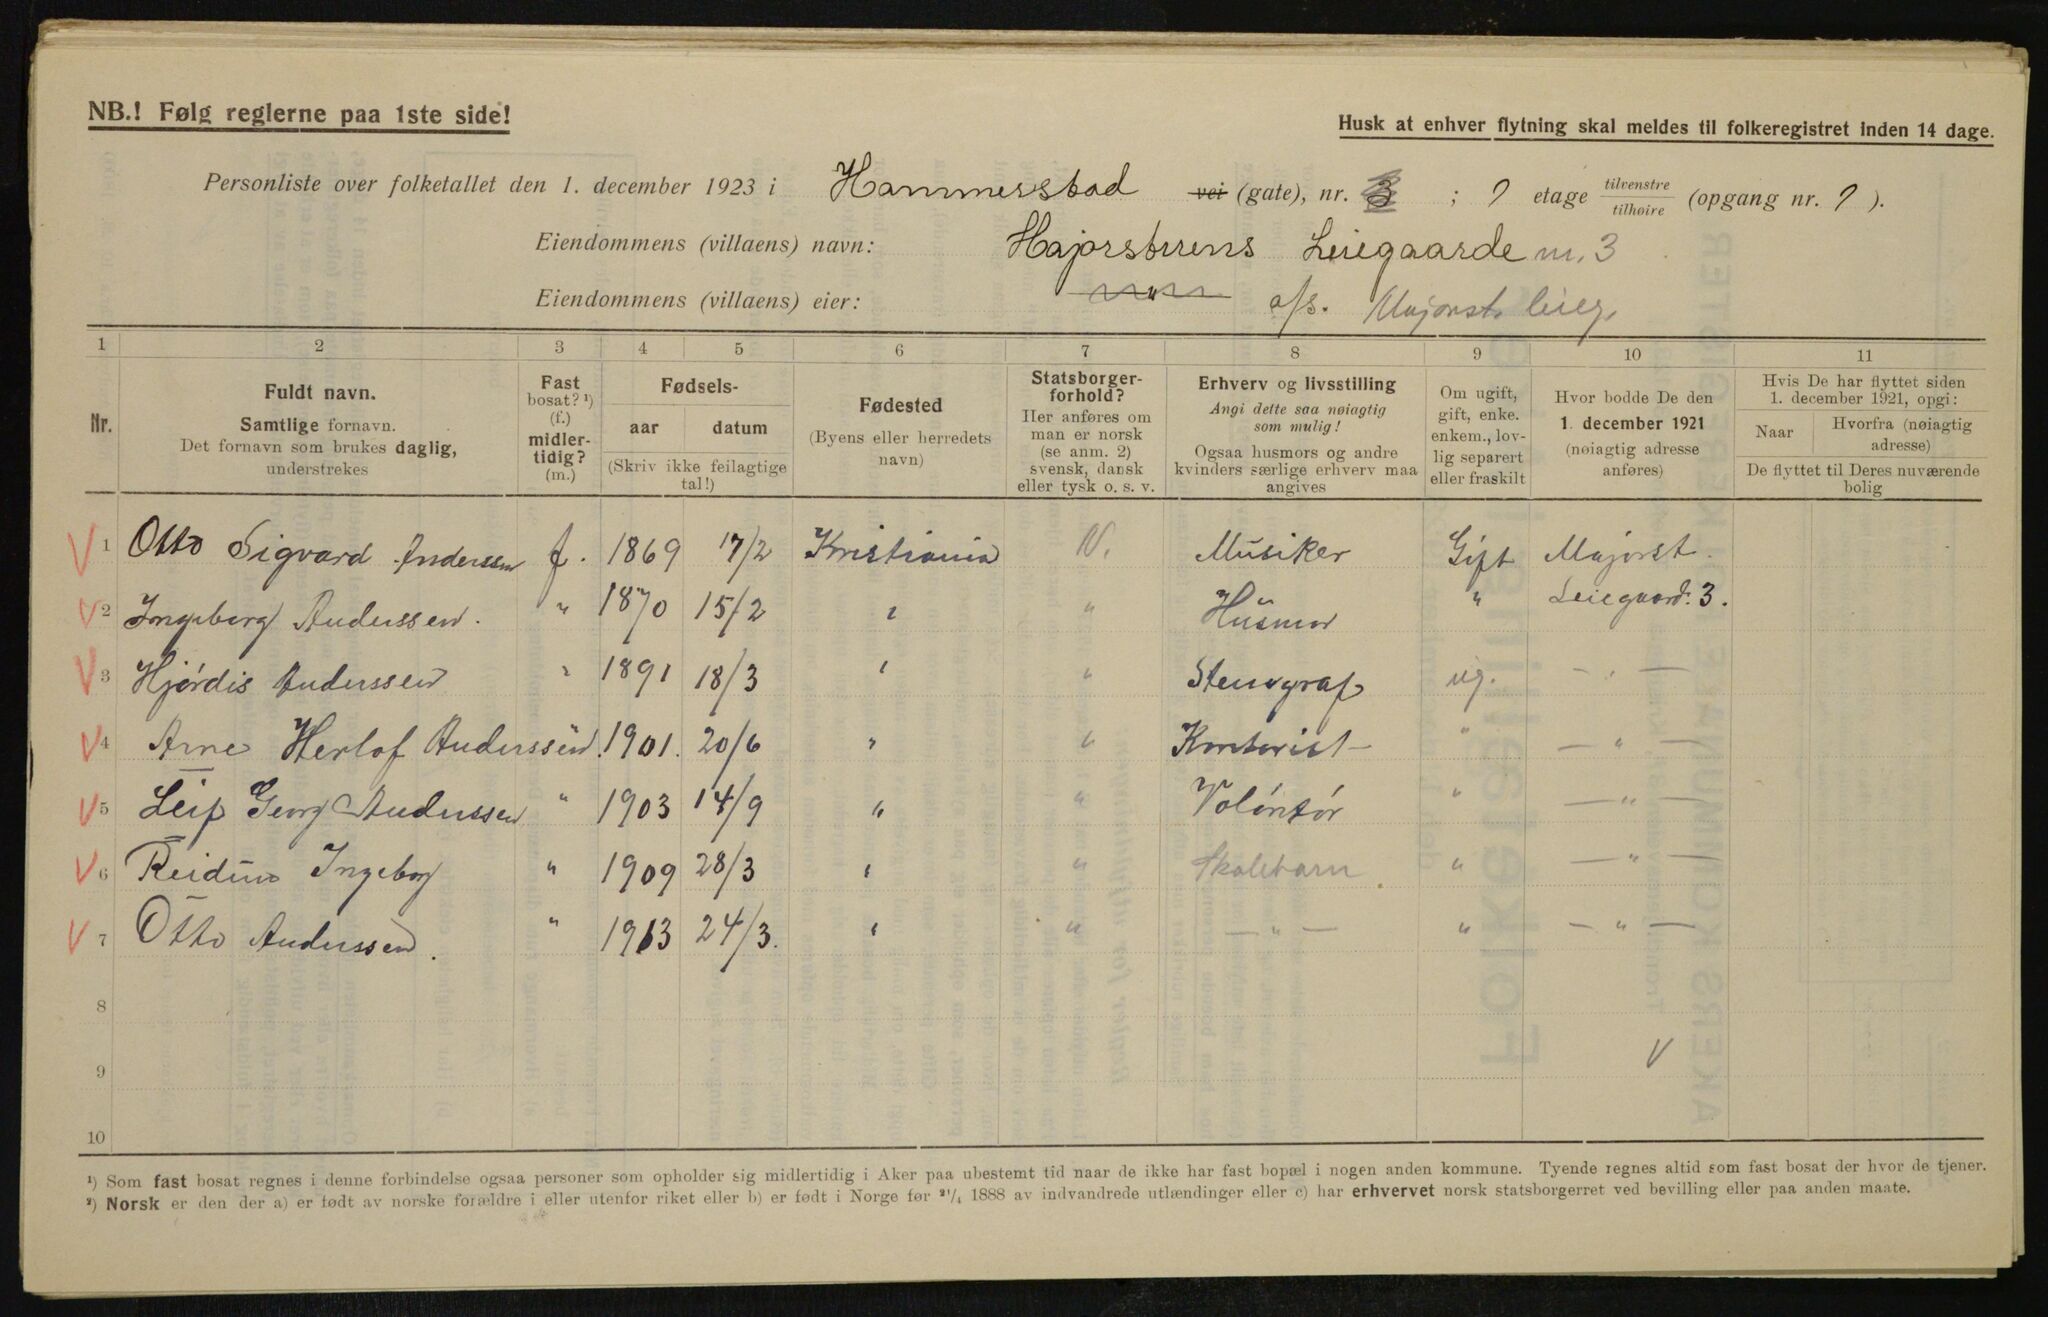 NB.! Følg reglerne paa 1ste side!
Husk at enhver flytning skal meldes til folkeregistret inden 14 dage.
Personliste over folketallet den 1. december 1923 i Hammerstad vei (gate), nr. 3 ; 1 etage tilvenstre tilhøire (opgang nr. 1 ).
Eiendommens (villaens) navn: Majorstuens Leiegaarde nr. 3
Eiendommens (villaens) eier: " a/s. Majorst. leieg.
1 2 3 4 5 6 7 8 9 10 11
Nr.
Fuldt navn. Samtlige fornavn. Det fornavn som brukes daglig, understrekes
Fast bosat? ¹) (f.) midlertidig? (m.)
Fødsels-
aar datum
(Skriv ikke feilagtige tal!)
Fødested (Byens eller herredets navn)
Statsborgerforhold? Her anføres om man er norsk (se anm. 2) svensk, dansk eller tysk o. s. v.
Erhverv og livsstilling Angi dette saa nøiagtig som mulig! Ogsaa husmors og andre kvinders særlige erhverv maa angives
Om ugift, gift, enke. enkem., lovlig separert eller fraskilt
Hvor bodde De den 1. december 1921 (nøiagtig adresse anføres)
Hvis De har flyttet siden 1. december 1921, opgi:
Naar Hvorfra (nøiagtig adresse)
De flyttet til Deres nuværende bolig
V 1 Otto Sigvard Anderssen f. 1869 17/2 Kristiania N. Musiker Gift Majorst.
V 2 Ingeborg Anderssen. " 1870 15/2 " " Husmor " Leiegaard. 3.
V 3 Hjórdis Anderssen " 1891 18/3 " " Stenograf ug. — " —
V 4 Arne Herlof Anderssen. 1901. 20/6 " " Kontorist " — " —
V 5 Leif Georg Anderssen " 1903 14/9 " " Volóntór " — " —
V 6 Reidun Ingeborg " 1909 28/3 " " Skolebarn " — " —
V 7 Otto Anderssen. " 1913 24/3. " " — " — " — " —
8
9 V
10
¹) Som fast bosat regnes i denne forbindelse ogsaa personer som opholder sig midlertidig i Aker paa ubestemt tid naar de ikke har fast bopæl i nogen anden kommune. Tyende regnes altid som fast bosat der hvor de tjener.
²) Norsk er den der a) er født av norske forældre i eller utenfor riket eller b) er født i Norge før ²¹/₄ 1888 av indvandrede utlændinger eller c) har erhvervet norsk statsborgerret ved bevilling eller paa anden maate.